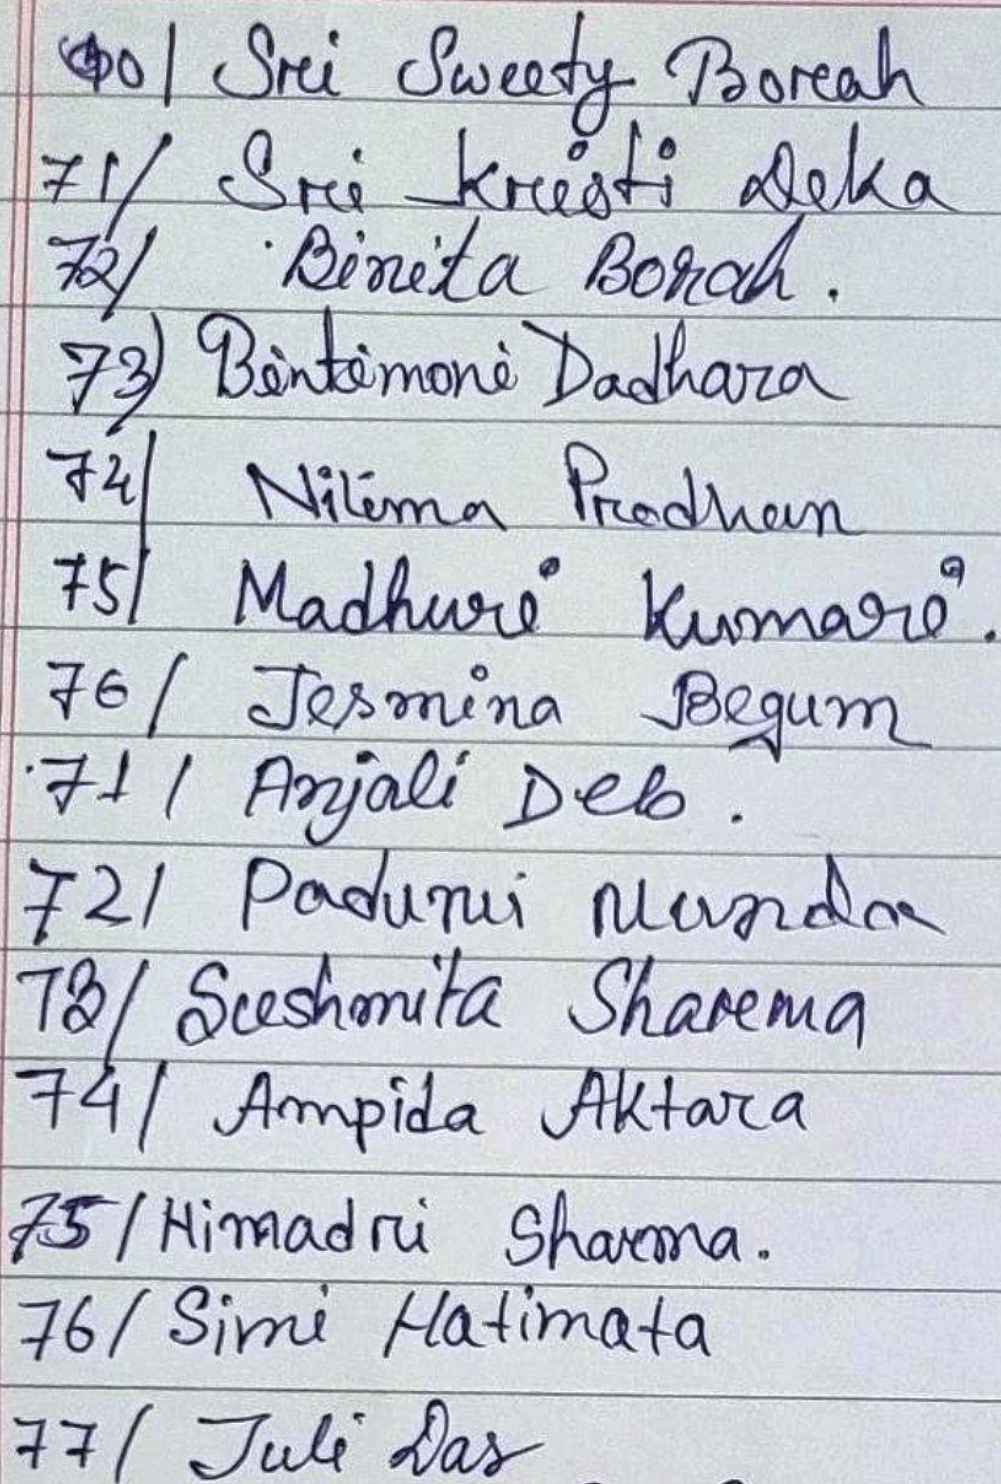 70/ Sri Sweety Borah
71/ Sri Kristi Deka
72/ Binita Borah.
73) Bintimoni Dadhara
74/ Nilima Pradhan
75/ Madhuri Kumari.
76/ Jesmina Begum
71/ Anjali Deb.
72/ Padumi Munda
73/ Sushmita Sharma
74/ Ampida Aktara
75/ Himadri Sharma.
76/ Simi Hatimata
77/ Juli Das